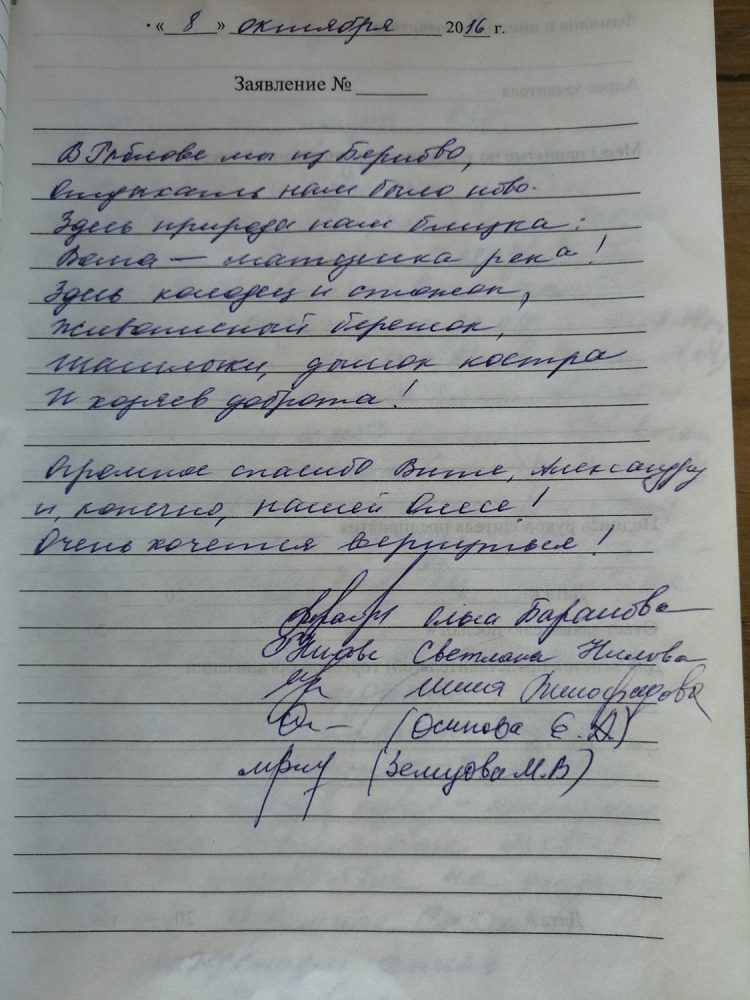 « 8 » октября 2016 г.
Заявление №
мы из
отдыхать нам было ново.
Здесь природа нам близка:
Волга — матушка река!
Здесь колодец и стожок,
Живописный бережок,
Шашлыки, дымок костра
И хозяев доброта!
Огромное спасибо Вите, Александру
и, конечно, нашей Олесе!
Очень хочется вернуться!
Ольга Баранова
Светлана Нилова
Виноградова
(Осипова Е. А.)
(М.В)